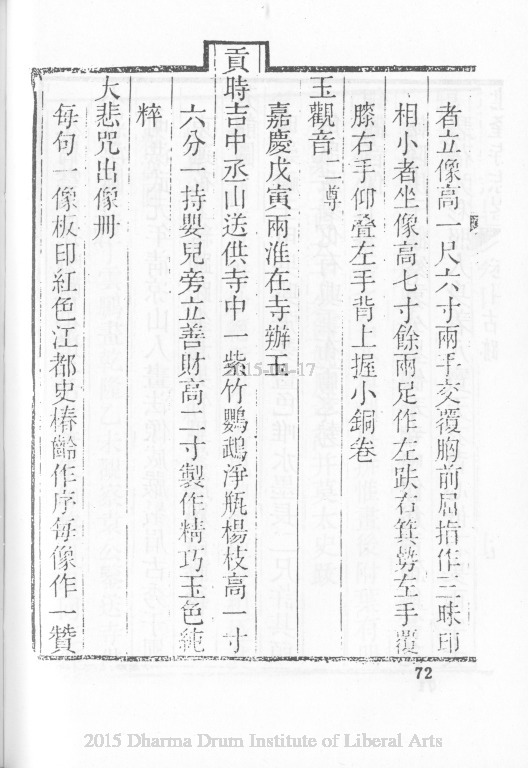 者立像高一尺六寸兩手交覆胸前屈指作三昧印
相小者坐像高七寸餘兩足作左趺右箕勢左手覆
膝右手仰叠左手背上握小銅卷
玉觀音二尊
嘉慶戊寅兩淮在寺辦玉
貢時吉中丞山送供寺中一紫竹鸚鵡淨瓶楊枝高一寸
六分一持嬰兒旁立善財高二寸製作精巧玉色純
粹
大悲咒出像冊
每句一像板印紅色江都史椿齡作序每像作一贊
72
2015 Dharma Drum Institute of Liberal Arts